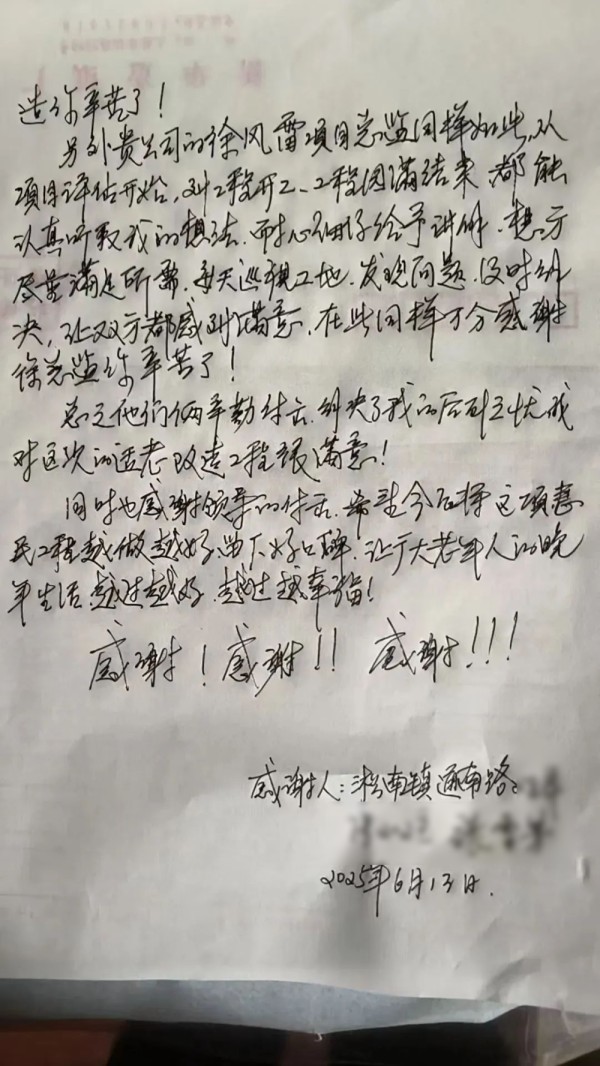 造你辛苦了！
另外贵公司的徐风雷项目总监同样如此，从
项目评估开始，到工程开工、工程圆满结束都能
认真听取我的想法，耐心细仔给予讲解，想方
尽量满足所需，每天巡视工地，发现问题，及时解
决，让双方都感到满意，在此同样万分感谢
徐总监你辛苦了！
总之他们俩辛勤付出，解决了我的后顾之忧我
对这次的适老改造工程很满意！
同时也感谢领导的付出，希望今后将这项惠
民工程越做越好，留下好口碑，让广大老年人的晚
年生活越过越好，越过越幸福！
感谢！感谢！！感谢！！！
感谢人：淞南镇通南路
2025年6月13日.